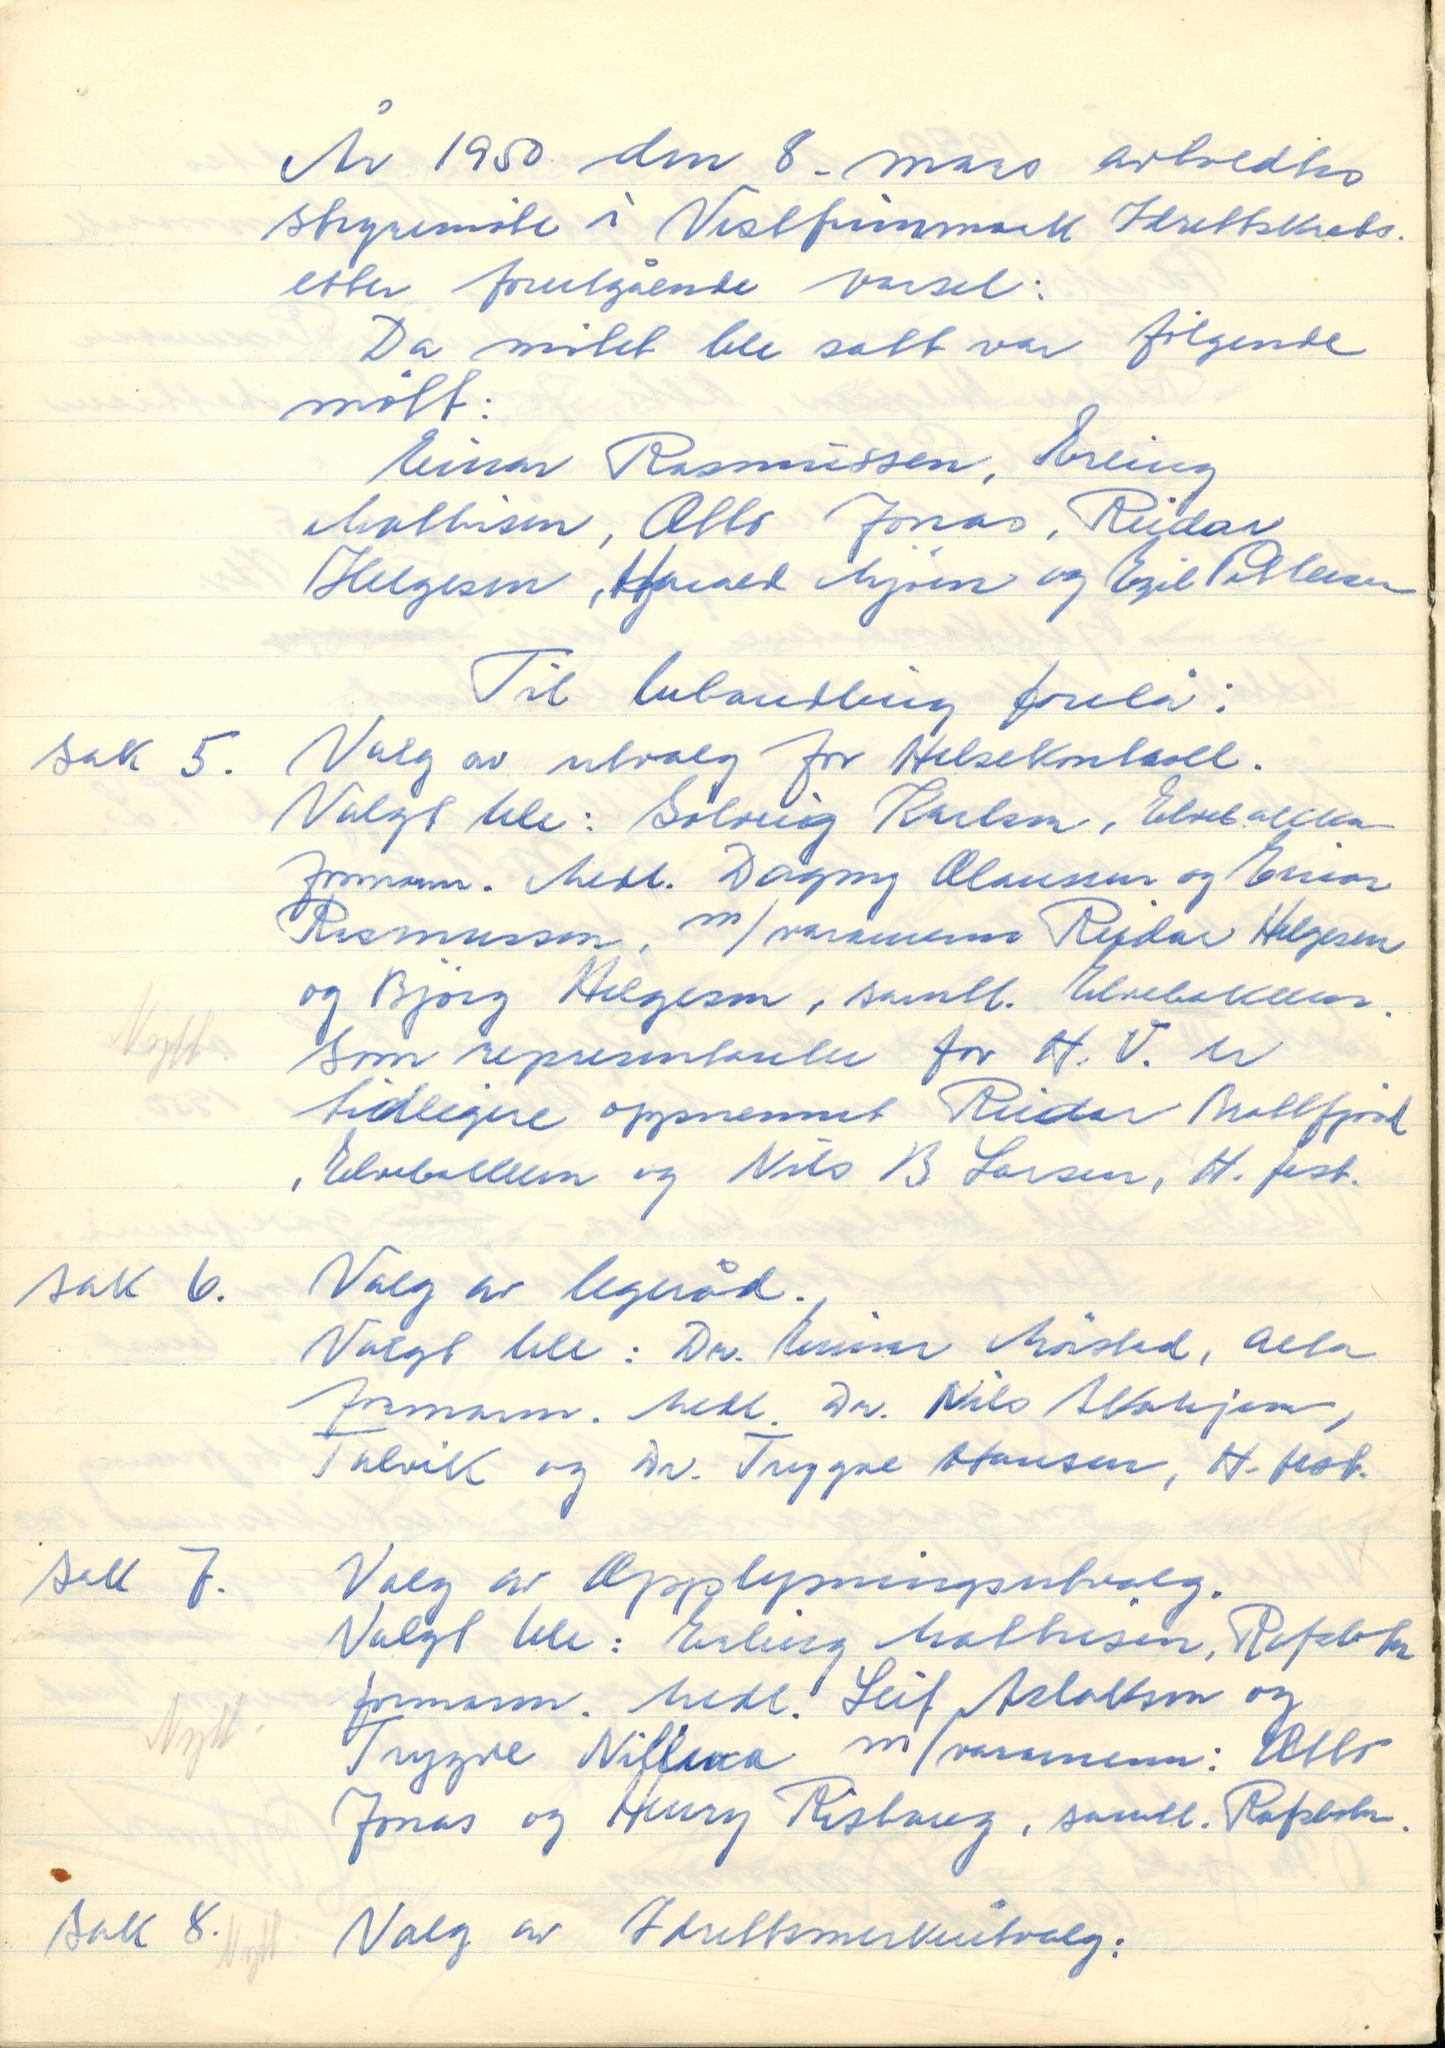 År 1950 den 8. mars avholdtes
styremöte i Vestfinnmark Idrettskrets.
etter forutgående varsel:
Da mötet ble satt var fölgende
mött:
Einar Rasmussen, Erling
Mathisen, Otto Jonas, Reidar
Helgesen, Harald Mjöen og Egil Pettersen
Til behandling forelå:
Sak 5. Valg av utvalg for Helsekontroll.
Valgt ble: Solveig Karlsen, Elvebakken
formann. Medl. Dagny Claussen og Einar
Rasmussen, m/varamenn Reidar Helgesen
og Björg Helgesen, samtl. Elvebakken.
Som representanter for H. V. er
tidligere oppnevnet Reidar Mattfjord
, Elvebakken og Nils B Larsen, H. fest.
Sak 6. Valg av legeråd.
Valgt ble: Dr. Einar Mörstad, Alta
formann. Medl. Dr. Nils
Talvik og Dr. Trygve Hansen, H. fest.
Sak 7. Valg av Opplysningsutvalg.
Valgt ble: Erling Mathisen, Rafsbotn
formann. Medl. Leif Aslaksen og
Nytt.
Trygve Nilluka m/varamenn: Otto
Jonas og Henry Risbarg, samtl. Rafsbotn.
Sak 8. Valg av Idrettsmerkeutvalg: